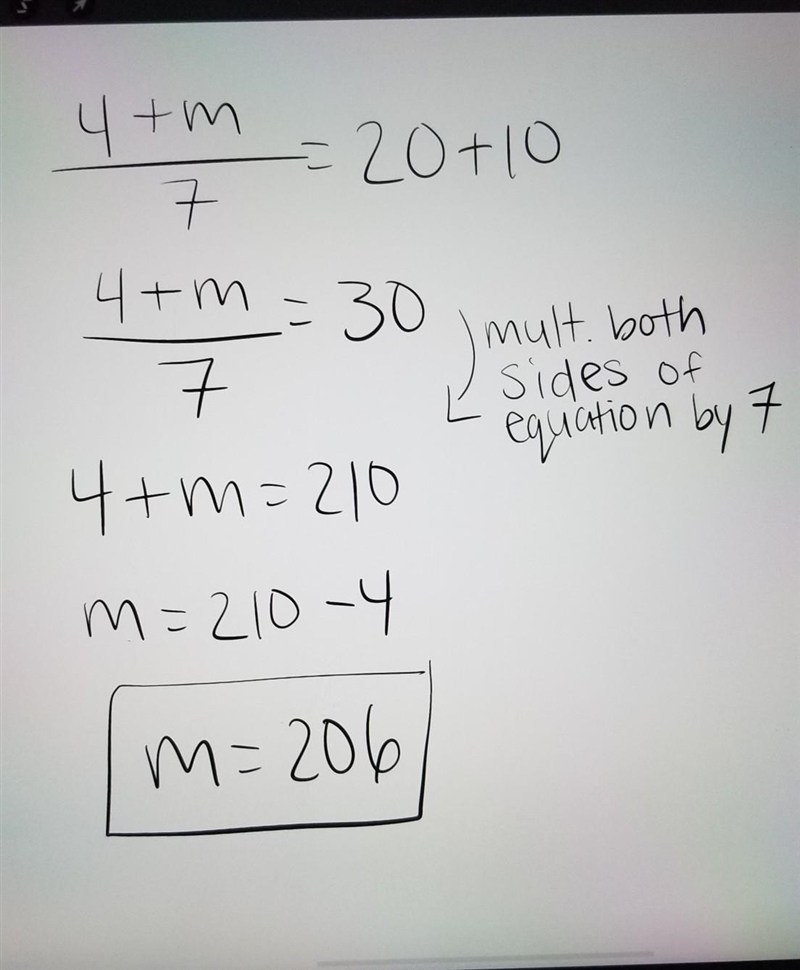 4+m
7
= 20+10
4+m
7
= 30
mult. both
sides of
equation by 7
4+m=210
m=210-4
m=206